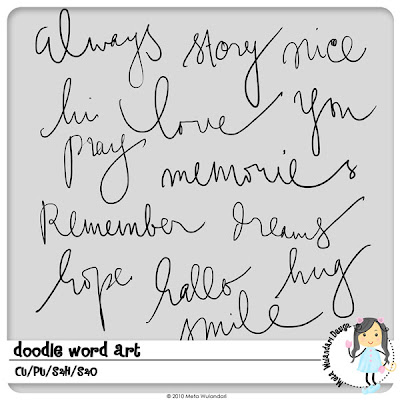 always story nice
hi love you
pray memories
Remember dreams
hope hallo hug
smile
doodle word art
CU/PU/S4H/S4O
Meta Wulandari Design
© 2010 Meta Wulandari